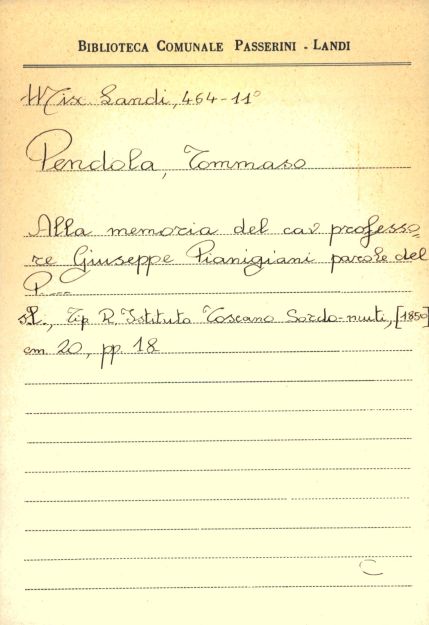 BIBLIOTECA COMUNALE PASSERINI - LANDI
Mix Landi, 464-11°
Pendola, Tommaso
Alla memoria del cav professo-
re Giuseppe Pianigiani parole del
P...
s.l., Tip R. Istituto Toscano Sordo-muti, [1850]
cm 20, pp. 18
C